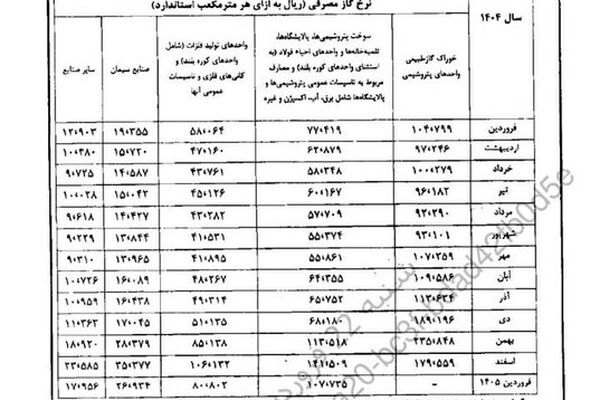 نرخ گاز مصرفی (ریال به ازای هر مترمکعب استاندارد)
سال ۱۴۰۴ خوراک گازطبیعی واحدهای پتروشیمی سوخت پتروشیمی‌ها، پالایشگاه‌ها، تلمبه‌خانه‌ها و واحدهای احیاء فولاد (به استثنای واحدهای کوره بلند) و مصارف مربوط به تاسیسات عمومی پتروشیمی‌ها و پالایشگاه‌ها شامل برق، آب، اکسیژن و غیره واحدهای تولید فلزات (شامل واحدهای کوره بلند) و کانی‌های فلزی و تاسیسات عمومی آنها صنایع سیمان سایر صنایع
فروردین ۱۰۴٬۷۹۹ ۷۷٬۴۱۹ ۵۸٬۰۶۴ ۱۹٬۳۵۵ ۱۲٬۹۰۳
اردیبهشت ۹۷٬۲۴۶ ۶۲٬۸۷۹ ۴۷٬۱۶۰ ۱۵٬۷۲۰ ۱۰٬۴۸۰
خرداد ۱۰۰٬۲۷۹ ۵۸٬۳۴۸ ۴۳٬۷۶۱ ۱۴٬۵۸۷ ۹٬۷۲۵
تیر ۹۶٬۱۸۲ ۶۰٬۱۶۷ ۴۵٬۱۲۶ ۱۵٬۰۴۲ ۱۰٬۰۲۸
مرداد ۹۲٬۲۹۰ ۵۷٬۷۰۹ ۴۳٬۲۸۲ ۱۴٬۴۲۷ ۹٬۶۱۸
شهریور ۹۳٬۱۰۱ ۵۵٬۳۷۴ ۴۱٬۵۳۱ ۱۳٬۸۴۴ ۹٬۲۲۹
مهر ۱۰۷٬۲۵۹ ۵۵٬۸۶۱ ۴۱٬۸۹۵ ۱۳٬۹۶۵ ۹٬۳۱۰
آبان ۱۰۹٬۵۸۶ ۶۴٬۳۵۵ ۴۸٬۲۶۷ ۱۶٬۰۸۹ ۱۰٬۷۲۶
آذر ۱۱۳٬۶۳۴ ۶۵٬۷۵۲ ۴۹٬۳۱۴ ۱۶٬۴۳۸ ۱۰٬۹۵۹
دی ۱۸۹٬۱۹۶ ۶۸٬۱۸۰ ۵۱٬۱۳۵ ۱۷٬۰۴۵ ۱۱٬۳۶۳
بهمن ۲۳۵٬۸۴۸ ۱۱۳٬۵۱۸ ۸۵٬۱۳۸ ۲۸٬۳۷۹ ۱۸٬۹۲۰
اسفند ۱۷۹٬۵۵۹ ۱۴۱٬۵۰۹ ۱۰۶٬۱۳۲ ۳۵٬۳۷۷ ۲۳٬۵۸۵
فروردین ۱۴۰۵ - ۱۰۷٬۷۳۵ ۸۰٬۸۰۲ ۲۶٬۹۳۴ ۱۷٬۹۵۶